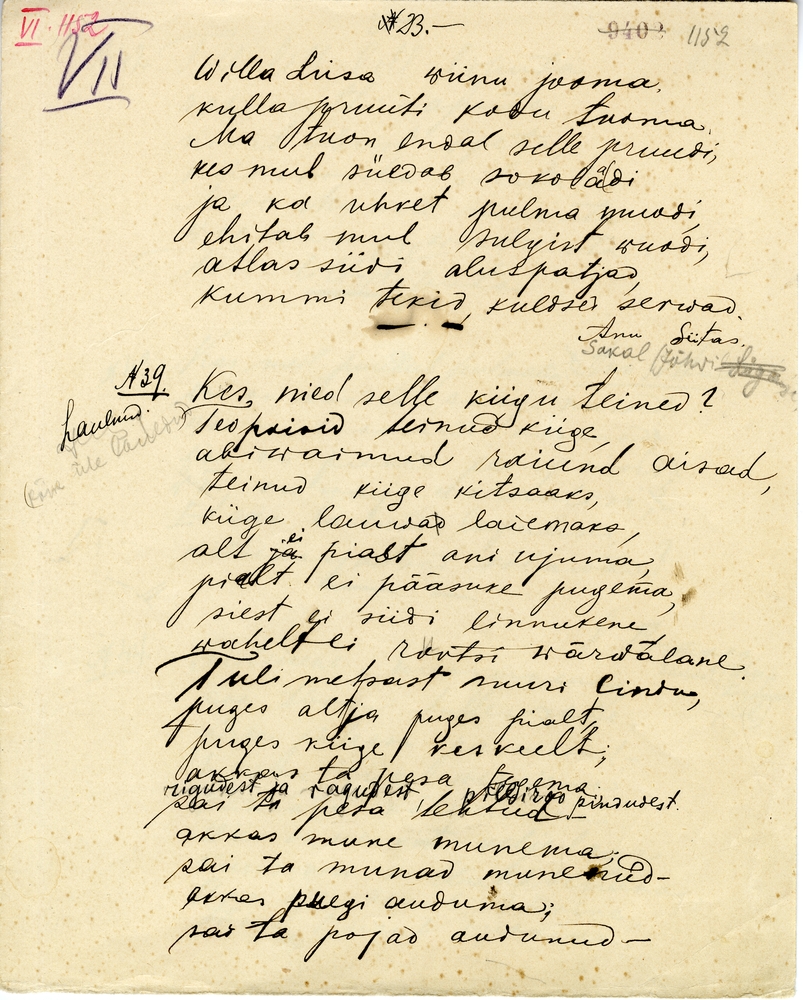 VI. 1152
№ 23.—
9402 1152
VII
Willa Liisa wiinu jooma,
kulla pruuti kodu tuoma.
Ma tuon endal selle pruudi,
kes mul süedab sokolädi
ja ka uhket pulma muodi,
ehitab mul sulgist wuodi,
atlas siidi aluspatjad,
kummi tekid, kuldsed serwad.
Anu Siitas.
Sakal (Jõhvi
N 39.
Laulnud.
Kes nied selle kiigu teined?
Teopoisid teinud kiige,
abiwaimud raiund aisad,
teinud kiige kitsaaks,
kiige lauwad laiemaks,
alt ei pialt ani ujuma,
pialt ei pääsuke pugema,
siest ei siidi linnukene
wahelt ei rootsi wärwälane.
Tuli metsast suuri lindu,
puges alt ja puges pialt,
puges kiige keskeelt;
akkas ta pesa tegema
riigudest ja ragudest, pindudest.
sai ta pesa tehtud —
akkas mune munema;
sai ta munad munenud —
akkas puegi auduma;
sai ta pojad audunud —